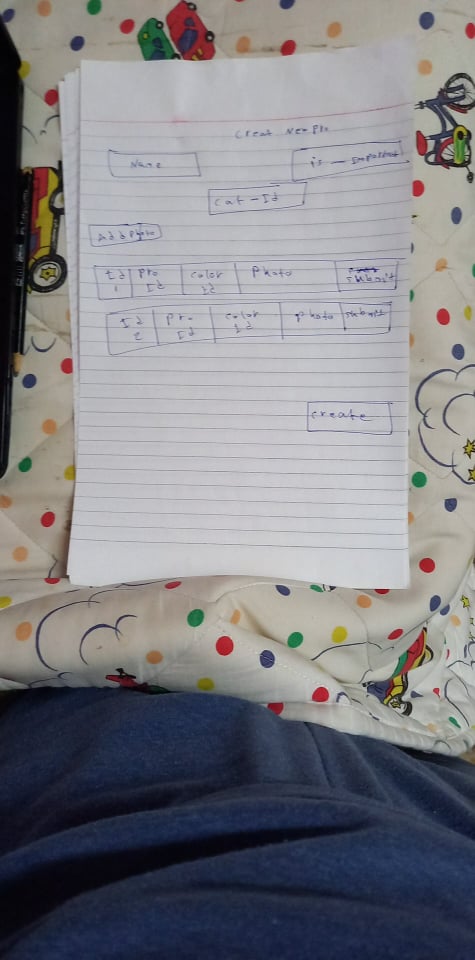 Creat New Pro
Name
is - Important
cat - Id
Add photo
Id Pro color Photo submit
1 Id Id
Id Pro color photo submit
2 Id Id
create